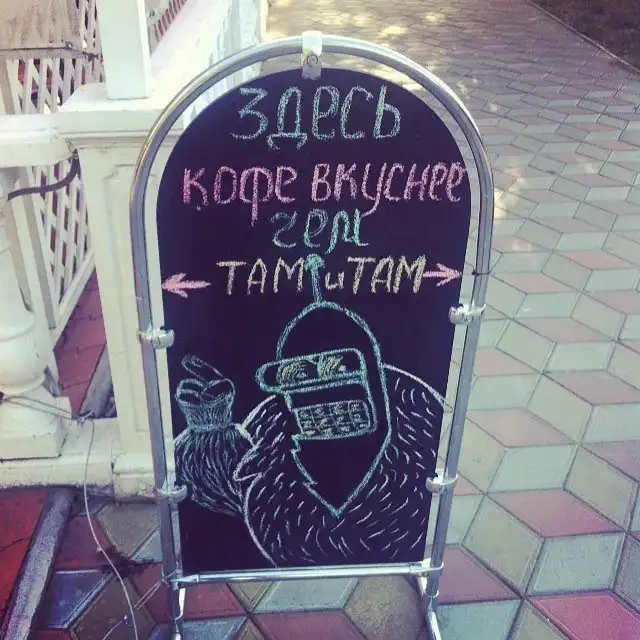 ЗДЕСЬ
КОФЕ ВКУСНЕЕ
ЧЕМ
ТАМ и ТАМ